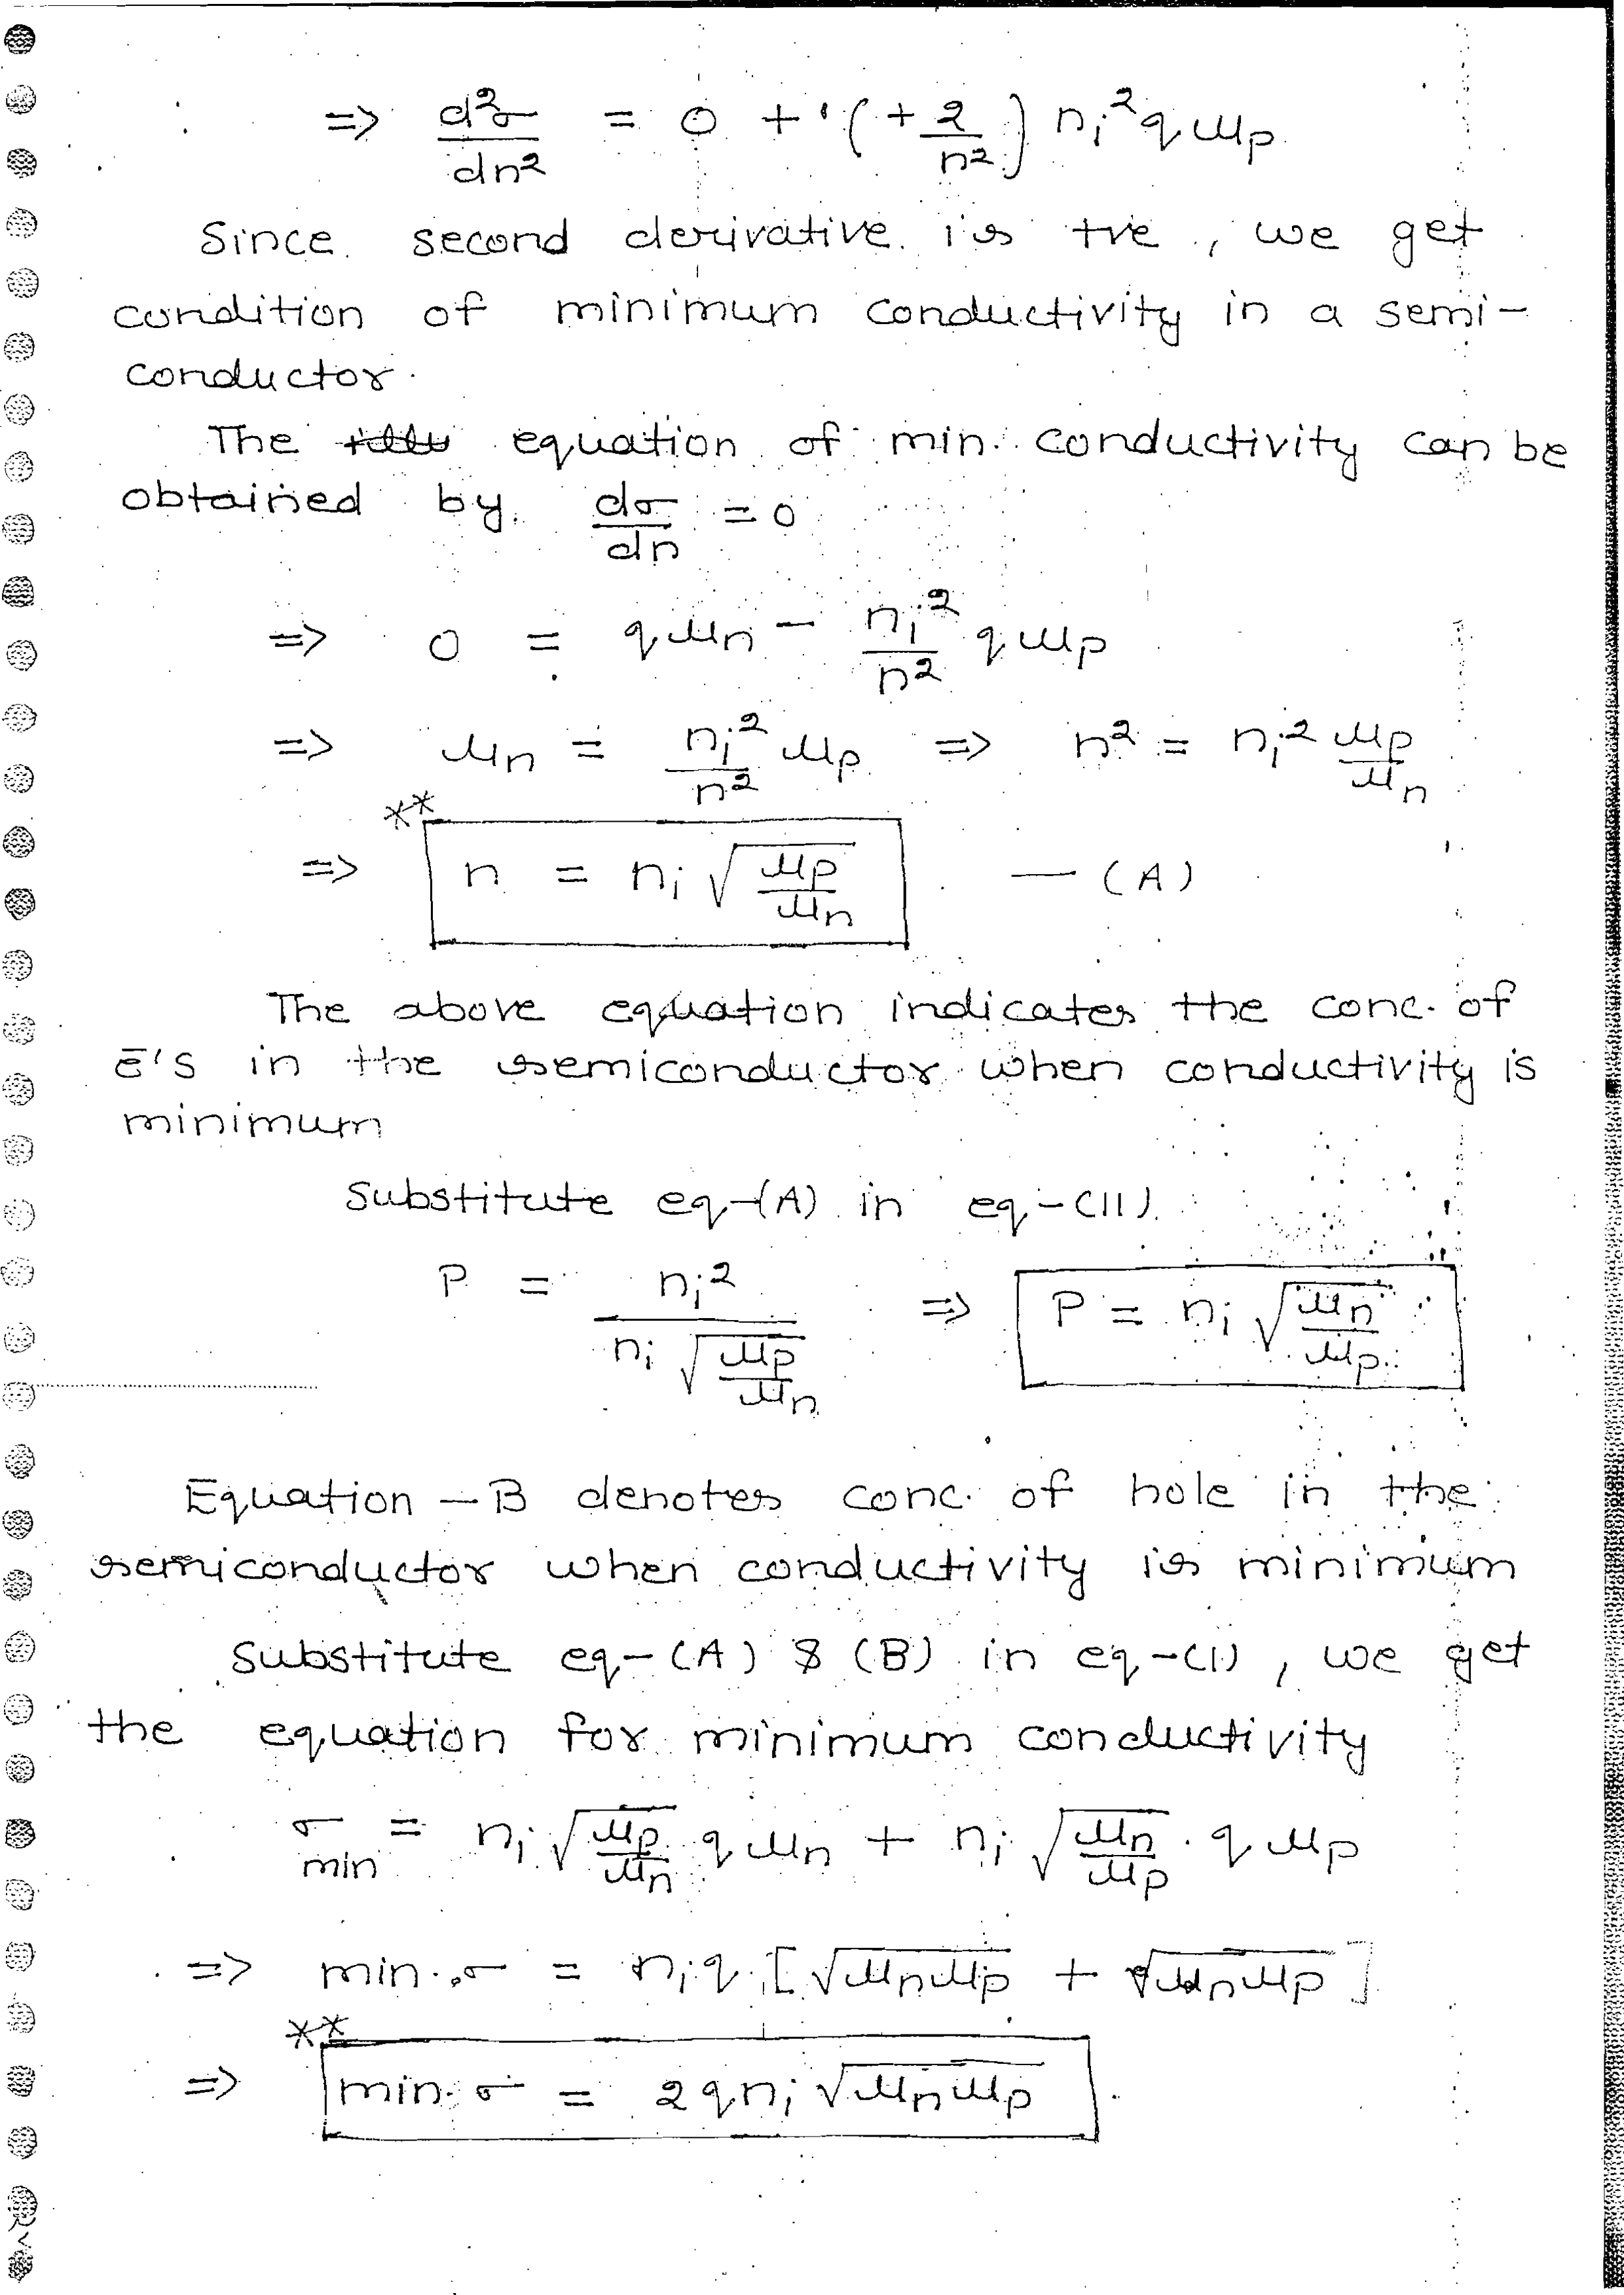 => d²σ/dn² = 0 + (+2/n²) nᵢ² q μp
Since second derivative is +ve, we get
condition of minimum conductivity in a semi-
conductor.
The equation of min. conductivity can be
obtained by dσ/dn = 0
=> 0 = qμn − nᵢ²/n² qμp
=> μn = nᵢ²/n² μp => n² = nᵢ² μp/μn
** => n = nᵢ √(μp/μn) — (A)
The above equation indicates the conc. of
ē's in the semiconductor when conductivity is
minimum
Substitute eq-(A) in eq-(II).
P = nᵢ²/(nᵢ √(μp/μn)) => P = nᵢ √(μn/μp)
Equation – B denotes conc. of hole in the
semiconductor when conductivity is minimum
Substitute eq-(A) & (B) in eq-(I), we get
the equation for minimum conductivity
σmin = nᵢ √(μp/μn) qμn + nᵢ √(μn/μp) . qμp
=> min. σ = nᵢq [√(μnμp) + √(μnμp)]
** => min. σ = 2qnᵢ √(μnμp)